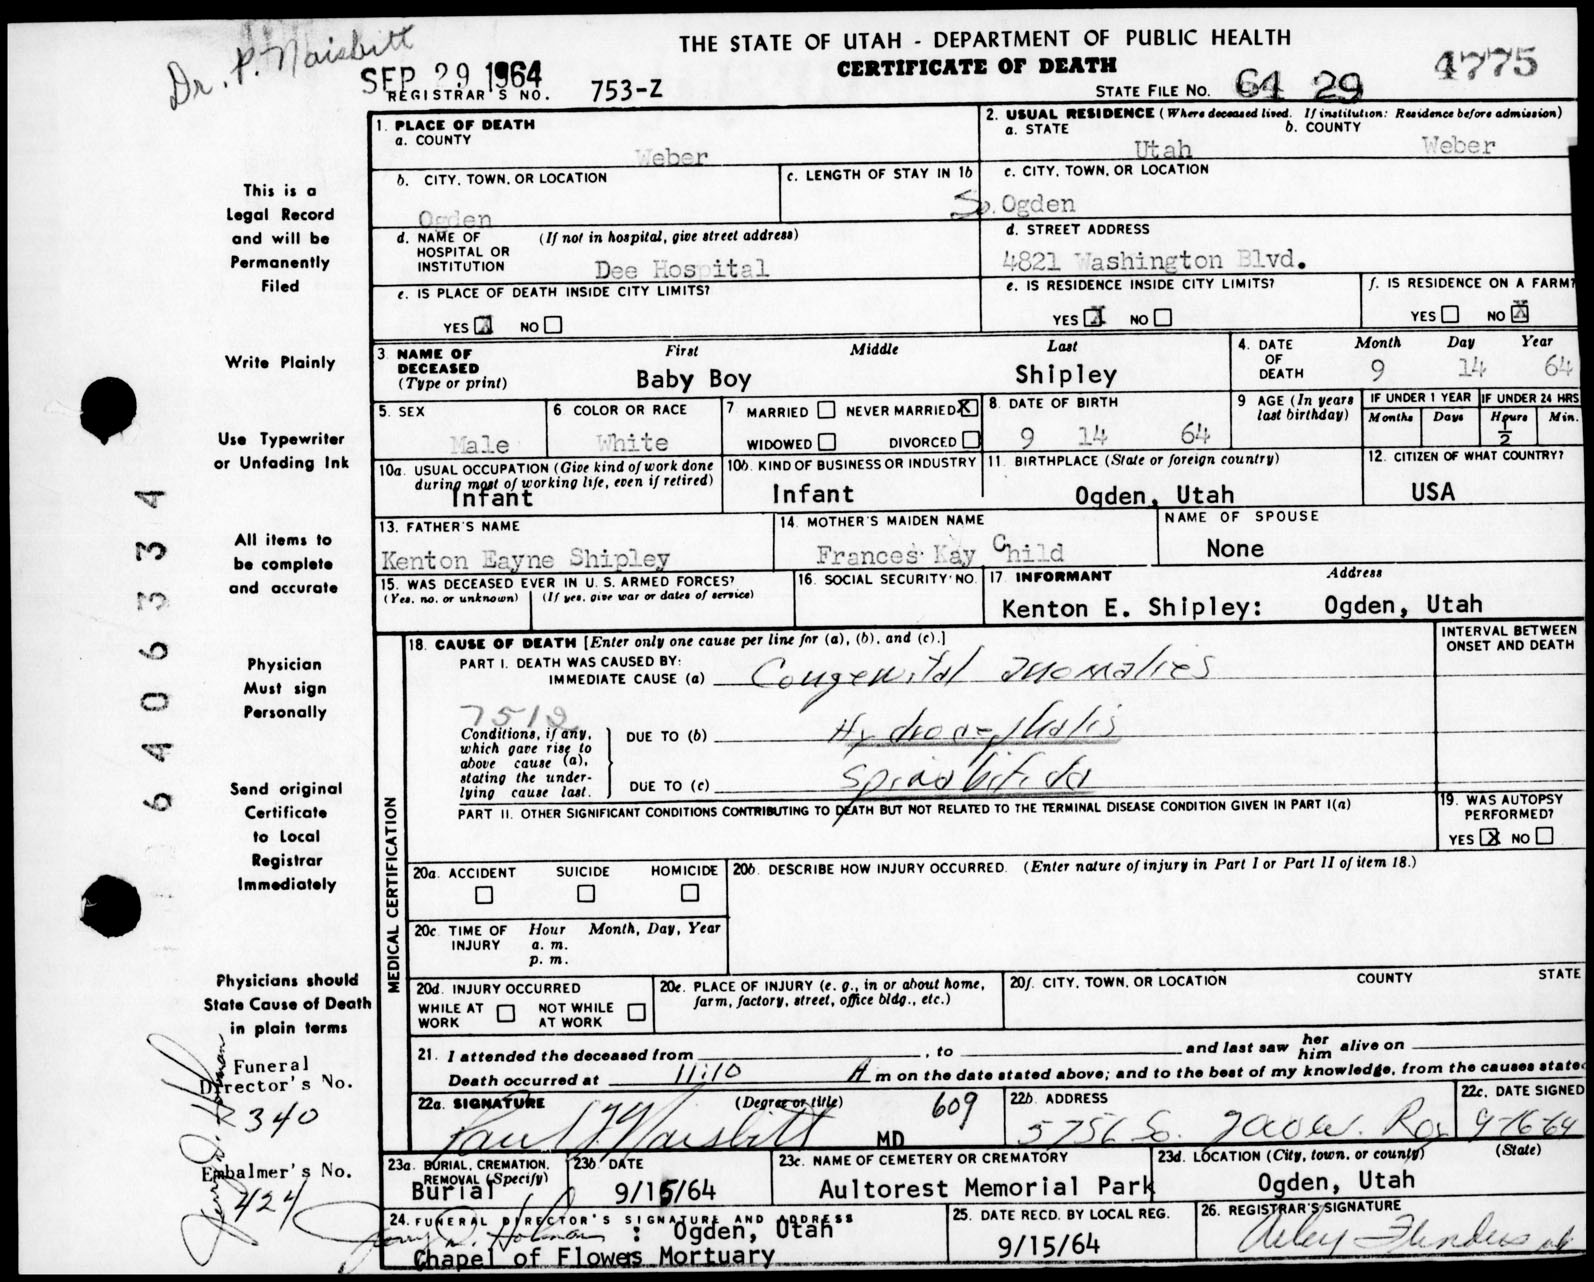 Dr. P. Naisbitt
THE STATE OF UTAH - DEPARTMENT OF PUBLIC HEALTH
CERTIFICATE OF DEATH
SEP 29 1964
REGISTRAR'S NO. 753-Z
STATE FILE NO. 64 29 4775
This is a
Legal Record
and will be
Permanently
Filed
Write Plainly
Use Typewriter
or Unfading Ink
All items to
be complete
and accurate
Physician
Must sign
Personally
Send original
Certificate
to Local
Registrar
Immediately
Physicians should
State Cause of Death
in plain terms
Funeral
Director's No.
340
Embalmer's No.
424
Jerry D. Holman
6406334
1. PLACE OF DEATH
a. COUNTY
Weber
2. USUAL RESIDENCE (Where deceased lived. If institution: Residence before admission)
a. STATE b. COUNTY
Utah Weber
b. CITY, TOWN, OR LOCATION
Ogden
c. LENGTH OF STAY IN 1b
c. CITY, TOWN, OR LOCATION
So. Ogden
d. NAME OF (If not in hospital, give street address)
HOSPITAL OR
INSTITUTION
Dee Hospital
d. STREET ADDRESS
4821 Washington Blvd.
e. IS PLACE OF DEATH INSIDE CITY LIMITS?
YES X NO
e. IS RESIDENCE INSIDE CITY LIMITS?
YES X NO
f. IS RESIDENCE ON A FARM?
YES NO X
3. NAME OF First Middle Last
DECEASED
(Type or print) Baby Boy Shipley
4. DATE Month Day Year
OF
DEATH 9 14 64
5. SEX
Male
6 COLOR OR RACE
White
7 MARRIED NEVER MARRIED X
WIDOWED DIVORCED
8. DATE OF BIRTH
9 14 64
9 AGE (In years
last birthday)
IF UNDER 1 YEAR IF UNDER 24 HRS
Months Days Hours Min.
1/2
10a. USUAL OCCUPATION (Give kind of work done
during most of working life, even if retired)
Infant
10b. KIND OF BUSINESS OR INDUSTRY
Infant
11. BIRTHPLACE (State or foreign country)
Ogden, Utah
12. CITIZEN OF WHAT COUNTRY?
USA
13. FATHER'S NAME
Kenton Eayne Shipley
14. MOTHER'S MAIDEN NAME
Frances Kay Child
NAME OF SPOUSE
None
15. WAS DECEASED EVER IN U. S. ARMED FORCES?
(Yes, no, or unknown) (If yes, give war or dates of service)
16. SOCIAL SECURITY NO.
17 INFORMANT Address
Kenton E. Shipley: Ogden, Utah
MEDICAL CERTIFICATION
18. CAUSE OF DEATH [Enter only one cause per line for (a), (b), and (c).]
INTERVAL BETWEEN
ONSET AND DEATH
PART I. DEATH WAS CAUSED BY:
IMMEDIATE CAUSE (a) Congenital anomalies
7512
Conditions, if any,
which gave rise to
above cause (a),
stating the under-
lying cause last.
DUE TO (b) Hydrocephalis
DUE TO (c) Spina bifida
PART II. OTHER SIGNIFICANT CONDITIONS CONTRIBUTING TO DEATH BUT NOT RELATED TO THE TERMINAL DISEASE CONDITION GIVEN IN PART I(a)
19. WAS AUTOPSY
PERFORMED?
YES X NO
20a. ACCIDENT SUICIDE HOMICIDE
20b. DESCRIBE HOW INJURY OCCURRED. (Enter nature of injury in Part I or Part II of item 18.)
20c TIME OF Hour Month, Day, Year
INJURY a. m.
p. m.
20d. INJURY OCCURRED
WHILE AT NOT WHILE
WORK AT WORK
20e. PLACE OF INJURY (e. g., in or about home,
farm, factory, street, office bldg., etc.)
20f. CITY, TOWN, OR LOCATION COUNTY STATE
21. I attended the deceased from , to and last saw her him alive on
Death occurred at 11:10 A m on the date stated above; and to the best of my knowledge, from the causes state
22a. SIGNATURE (Degree or title) 609
Paul T. Naisbitt MD
22b. ADDRESS
5756 So.
22c. DATE SIGNED
9-16-64
23a. BURIAL, CREMATION,
REMOVAL (Specify)
Burial
23b DATE
9/15/64
23c. NAME OF CEMETERY OR CREMATORY
Aultorest Memorial Park
23d. LOCATION (City, town, or county) (State)
Ogden, Utah
24. FUNERAL DIRECTOR'S SIGNATURE AND ADDRESS
Jerry D. Holman : Ogden, Utah
Chapel of Flowes Mortuary
25. DATE RECD. BY LOCAL REG.
9/15/64
26. REGISTRAR'S SIGNATURE